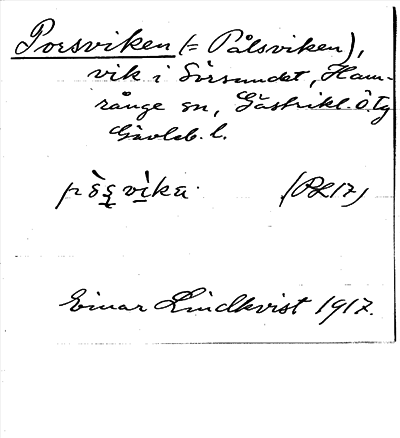 Porsviken (= Pålsviken),
vik i Sörsundet, Ham-
rånge sn, Gästrikl. Ö. Tg
Gävleb. l.
Einar Lindkvist 1917.